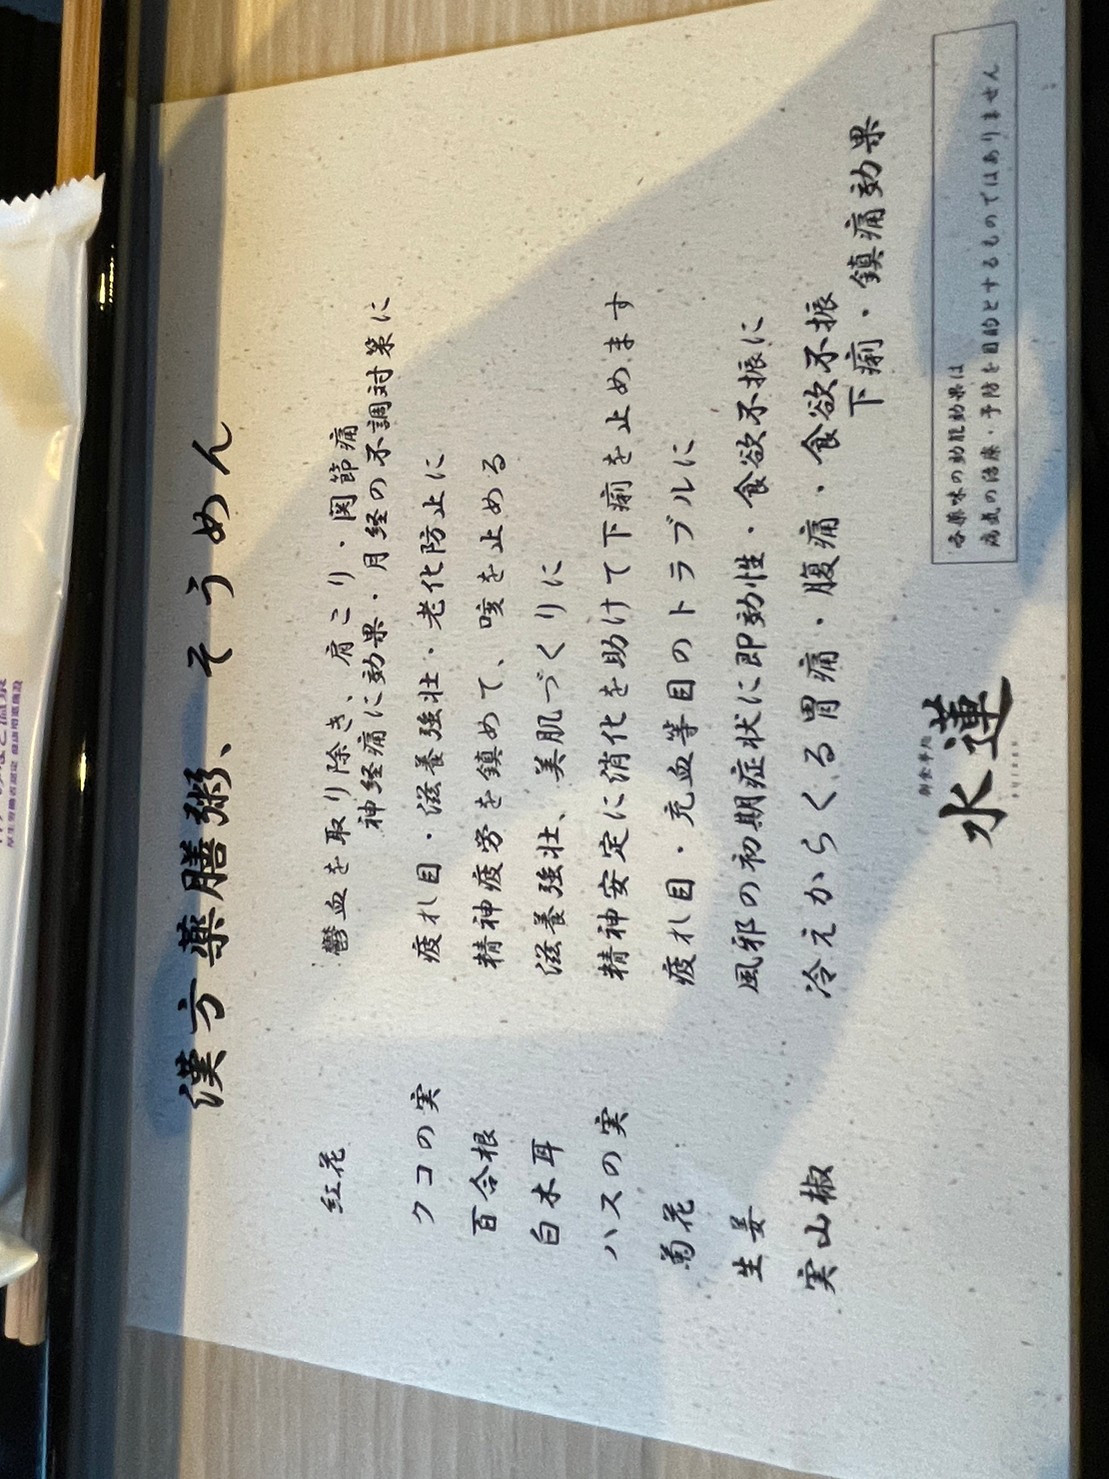 漢方薬膳粥、そうめん
紅花
鬱血を取り除き、肩こり・関節痛
神経痛に効果・月経の不調対策に
クコの実
疲れ目・滋養強壮・老化防止に
百合根
精神疲労を鎮めて、咳を止める
白木耳
滋養強壮、美肌づくりに
ハスの実
精神安定に消化を助けて下痢を止めます
菊花
疲れ目・充血等目のトラブルに
生姜
風邪の初期症状に即効性・食欲不振に
実山椒
冷えからくる胃痛・腹痛、食欲不振
下痢・鎮痛効果
各薬味の効能効果は
病気の治療・予防を目的とするものではありません
御食事処
水蓮
SUIREN
厚生労働省認定 健康増進施設